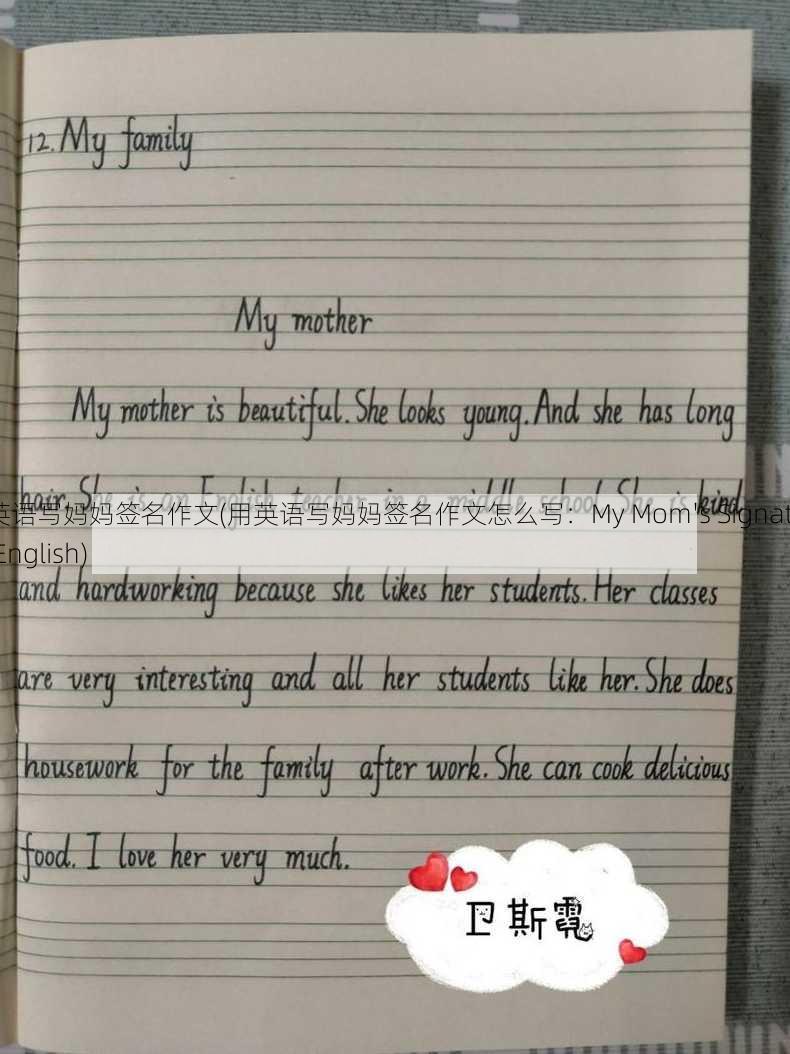 12. My family
My mother
My mother is beautiful. She looks young. And she has long
hair. She is an English teacher in a middle school. She is kind
英语写妈妈签名作文(用英语写妈妈签名作文怎么写：My Mom's Signat
English)
and hardworking because she likes her students. Her classes
are very interesting and all her students like her. She does
housework for the family after work. She can cook delicious
food. I love her very much.
卫斯霓